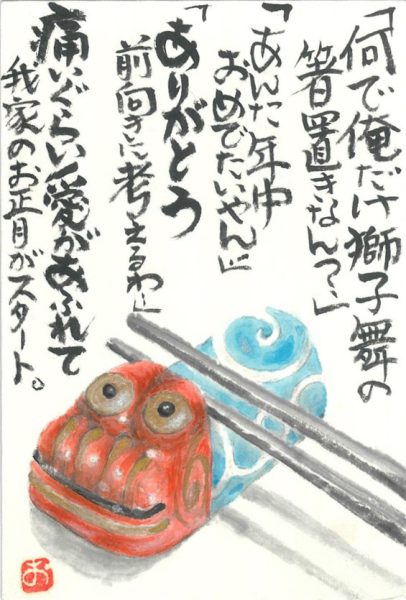 「何で俺だけ獅子舞の
箸置きなん？」
「あんた年中
おめでたいやん」
「ありがとう
前向きに考えるわ」
痛いぐらい愛があふれて
我家のお正月がスタート。
お